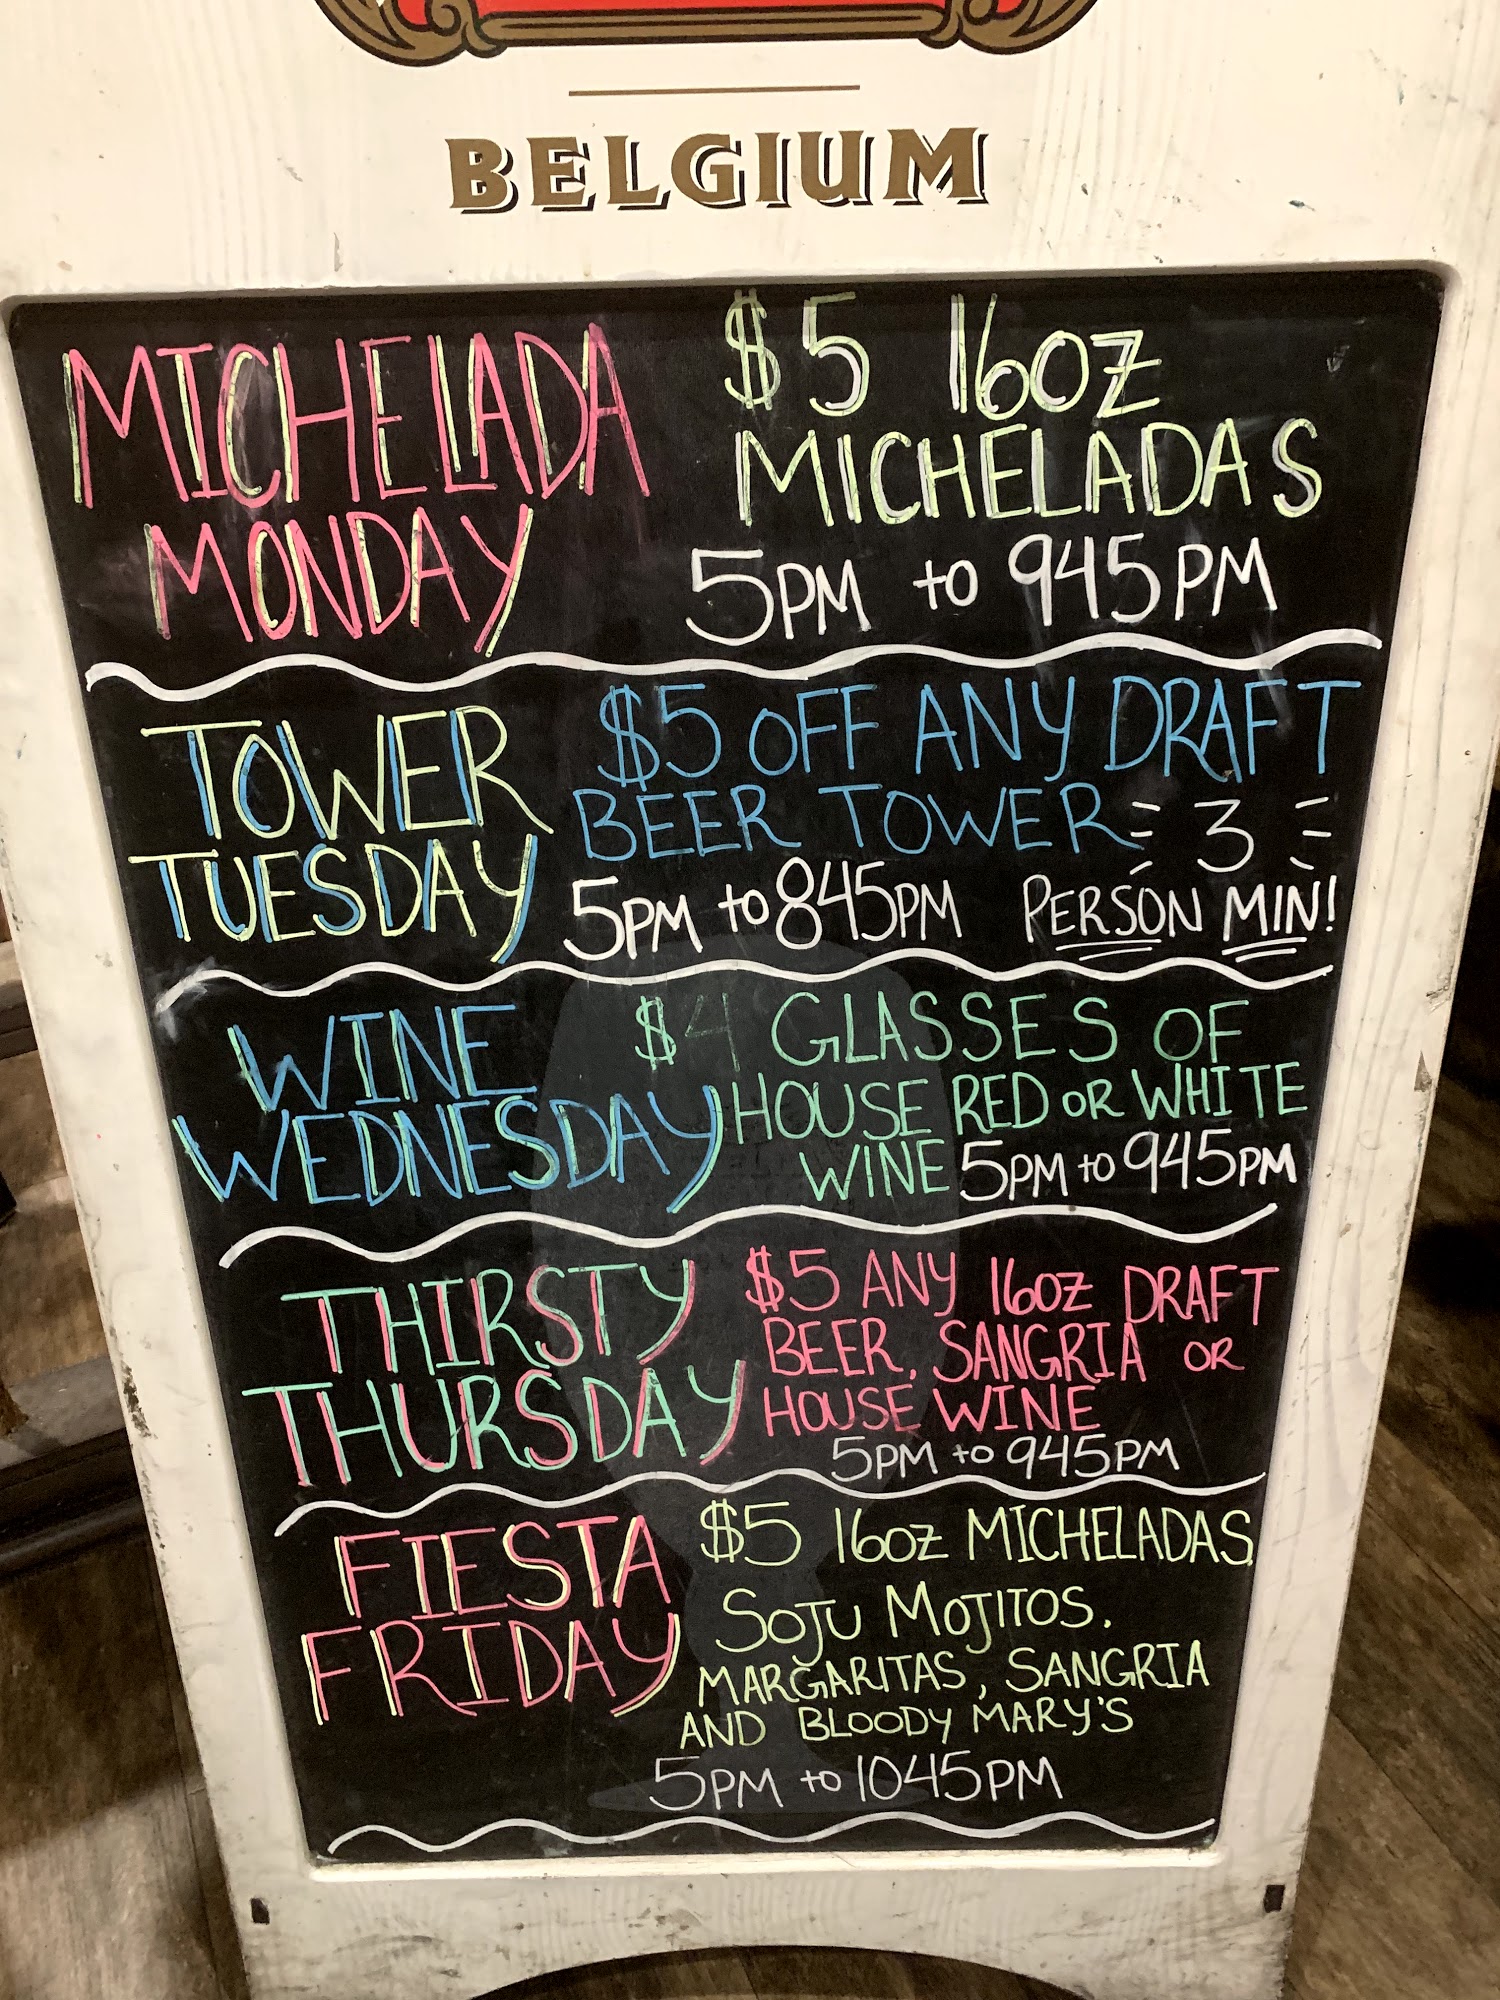 BELGIUM
MICHELADA
MONDAY
$5 16OZ
MICHELADAS
5PM to 945PM
TOWER
TUESDAY
$5 OFF ANY DRAFT
BEER TOWER
5PM to 845PM
3
PERSON MIN!
WINE
WEDNESDAY
$4 GLASSES OF
HOUSE RED OR WHITE
WINE 5PM to 945PM
THIRSTY
THURSDAY
$5 ANY 16OZ DRAFT
BEER, SANGRIA OR
HOUSE WINE
5PM to 945PM
FIESTA
FRIDAY
$5 16OZ MICHELADAS
SOJU MOJITOS.
MARGARITAS, SANGRIA
AND BLOODY MARY'S
5PM to 1045PM